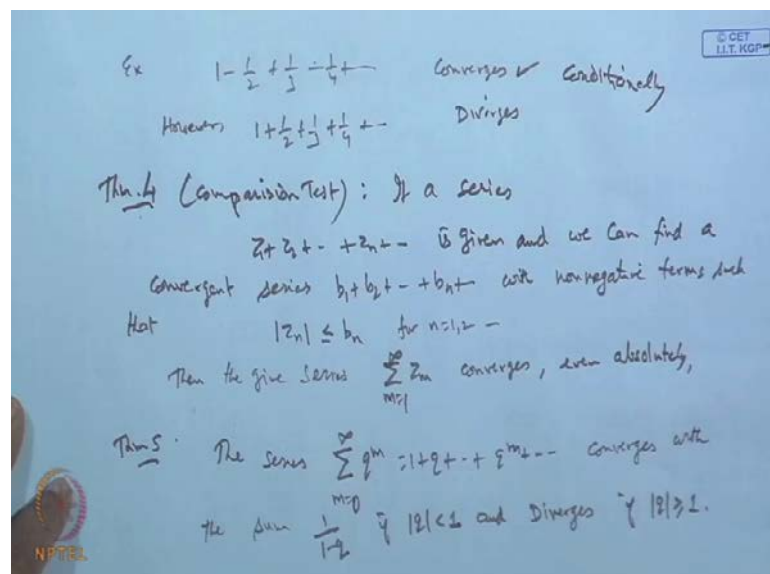 © CET
I.I.T. KGP
Ex 1 - 1/2 + 1/3 - 1/4 + - Converges ✓ Conditionally
However 1 + 1/2 + 1/3 + 1/4 + - - Diverges
Thm.4 (Comparision Test): If a series
z1 + z2 + - + zn + - is given and we can find a
convergent series b1 + b2 + - + bn + with nonnegative terms such
that |zn| ≤ bn for n=1,2 -
Then the give series ∞∑m=1 zm converges, even absolutely,
Thm 5. The series ∞∑m=0 q^m = 1 + q + - + q^m + - - converges with
the sum 1/(1-q) if |q| < 1 and Diverges if |q| ≥ 1.
NPTEL